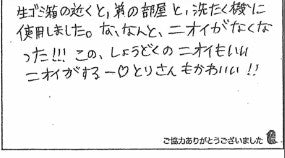 生ゴミ箱の近くと、弟の部屋と、洗たく機に
使用しました。な、なんと、ニオイがなくな
った!!! この、しょうどくのニオイもいい
ニオイがするー♡とりさんもかわいい!!
ご協力ありがとうございました